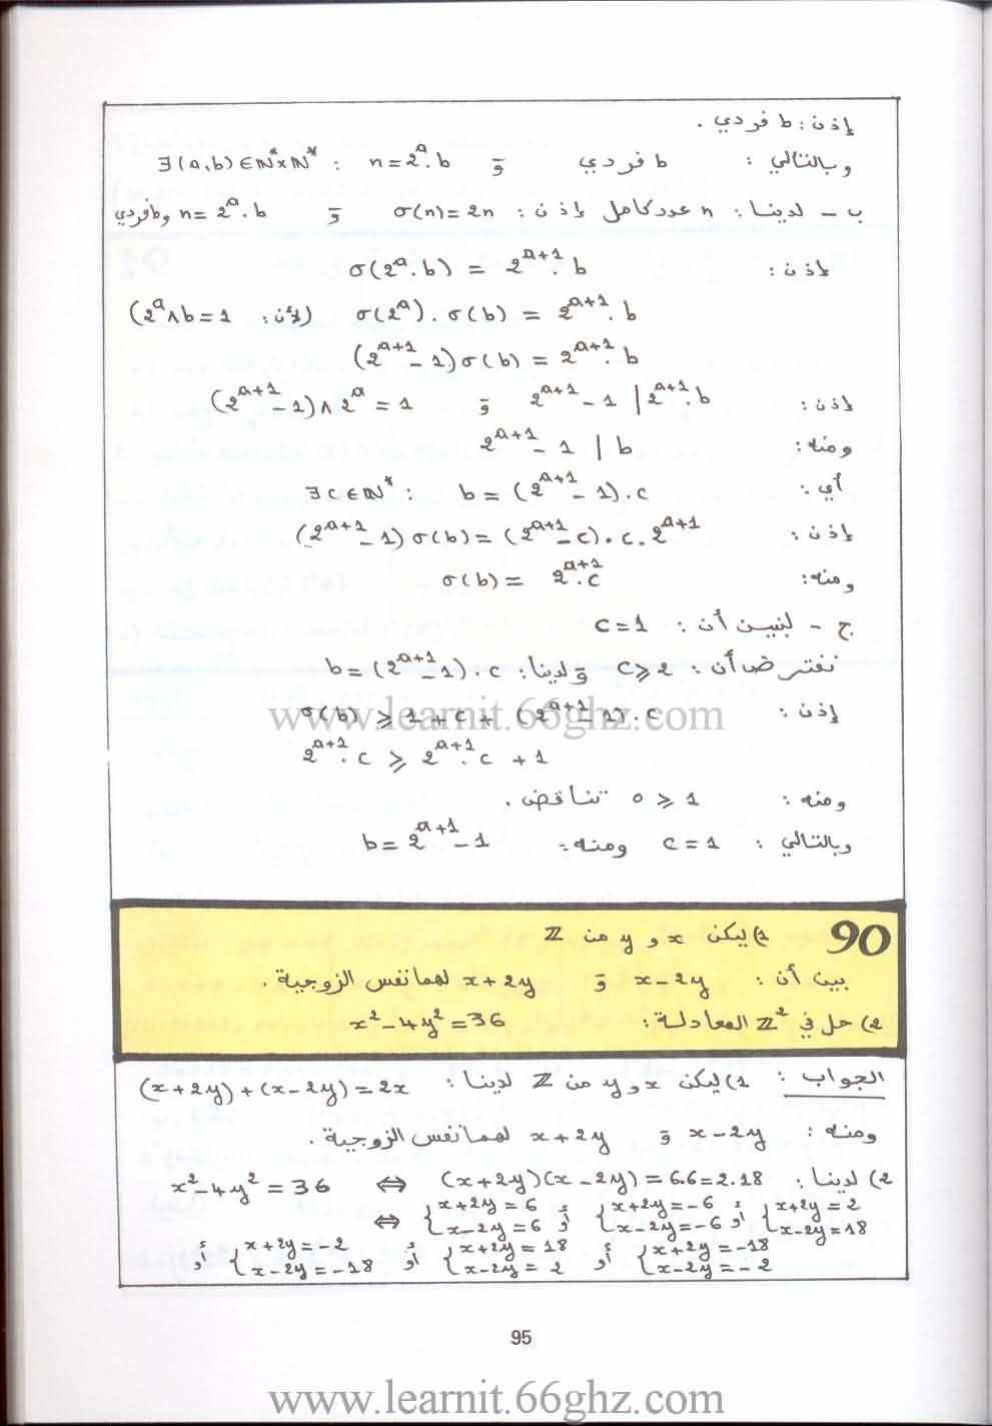 إذن : b فردي .
وبالتالي : b فردي وَ ∃(a,b) ∈ ℕ*×ℕ* : n = 2^a . b
ب - لدينا : n عدد كامل إذن : σ(n) = 2n وَ n = 2^a . b و b فردي
إذن : σ(2^a . b) = 2^{a+1} . b
σ(2^a) . σ(b) = 2^{a+1} . b (لأن : 2^a ∧ b = 1)
(2^{a+1} - 1) σ(b) = 2^{a+1} . b
إذن : 2^{a+1} - 1 | 2^{a+1} . b وَ (2^{a+1} - 1) ∧ 2^a = 1
ومنه : 2^{a+1} - 1 | b
أي : ∃ c ∈ ℕ* : b = (2^{a+1} - 1) . c
إذن : (2^{a+1} - 1) σ(b) = (2^{a+1} - c) . c . 2^{a+1}
ومنه : σ(b) = 2^{a+1} . c
ج - لنبين أن : c = 1
نفترض أن : c ⩾ 2 وَ لدينا : b = (2^{a+1} - 1) . c
إذن : σ(b) ⩾ 1 + c + (2^{a+1} - 1) . c
www.learnit.66ghz.com
2^{a+1} . c ⩾ 2^{a+1} . c + 1
ومنه : 0 ⩾ 1 تناقض .
وبالتالي : c = 1 ومنه : b = 2^{a+1} - 1
90 1) ليكن x و y من ℤ
بين أن : x - 2y وَ x + 2y لهما نفس الزوجية .
2) حل في ℤ² المعادلة : x² - 4y² = 36
الجواب : 1) ليكن x و y من ℤ لدينا : (x + 2y) + (x - 2y) = 2x
ومنه : x - 2y وَ x + 2y لهما نفس الزوجية .
2) لدينا : x² - 4y² = 36 ⇔ (x + 2y)(x - 2y) = 6.6 = 2.18
⇔ { x+2y = 6 أو { x+2y = -6 أو { x+2y = 2
{ x-2y = 6 { x-2y = -6 { x-2y = 18
أو { x+2y = -2 أو { x+2y = 18 أو { x+2y = -18
{ x-2y = -18 { x-2y = 2 { x-2y = -2
95
www.learnit.66ghz.com